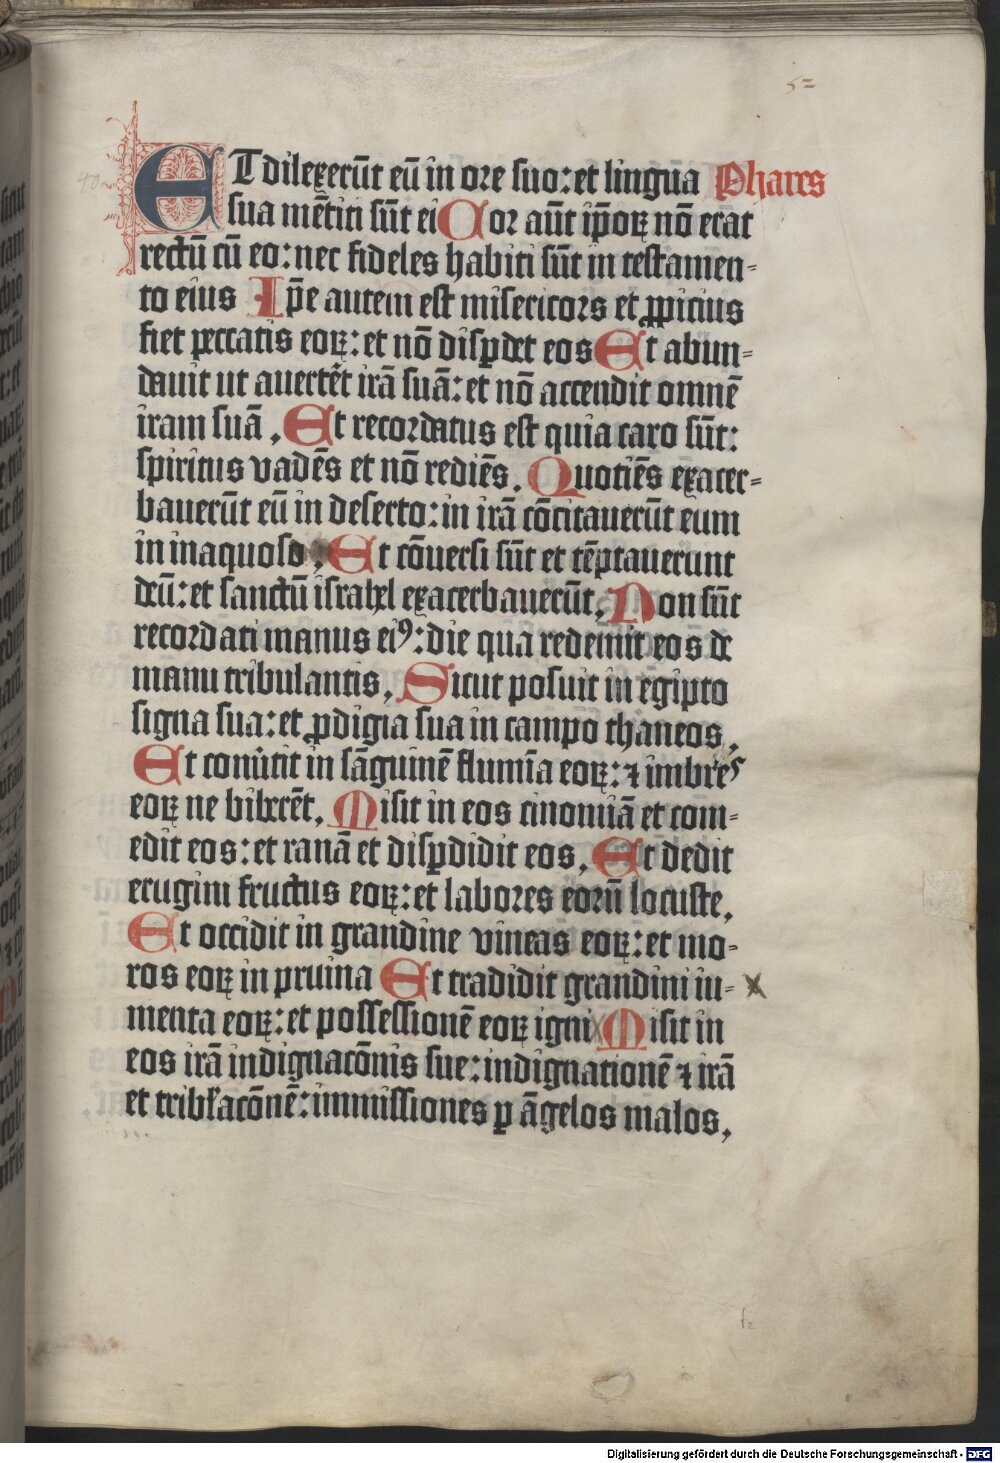 52
ET dilexerūt eū in ore suo: et lingua Phares
sua mētiti sūt ei Cor aūt ip̄oꝝ nō erat
rectū cū eo: nec fideles habiti sūt in testamen⸗
to eius Ip̄e autem est misericors et ꝓpicius
fiet peccatis eoꝝ: et nō disꝑdet eos Et abun⸗
dauit ut auertēt irā suā: et nō accendit omnē
iram suā. Et recordatus est quia caro sūt:
spiritus vadēs et nō rediēs. Quotiēs exacer⸗
bauerūt eū in deserto: in irā cōcitauerūt eum
in inaquoso. Et cōuersi sūt et tēptauerunt
deū: et sanctū israhel exacerbauerūt. Non sūt
recordati manus eiꝰ: die qua redemit eos de
manu tribulantis. Sicut posuit in egipto
signa sua: et ꝓdigia sua in campo thaneos.
Et conūtit in sāguinē flumīa eoꝝ: ⁊ imbres
eoꝝ ne biberēt. Misit in eos cinomiā et com⸗
edit eos: et ranā et disꝑdidit eos. Et dedit
erugini fructus eoꝝ: et labores eorū locuste.
Et occidit in grandine vineas eoꝝ: et mo⸗
ros eoꝝ in pruina Et tradidit grandini iu⸗
menta eoꝝ: et possessionē eoꝝ igni Misit in
eos irā indignacōnis sue: indignationē ⁊ irā
et tribl̄acōnē: immissiones ꝑ āgelos malos.
Digitalisierung gefördert durch die Deutsche Forschungsgemeinschaft - DFG